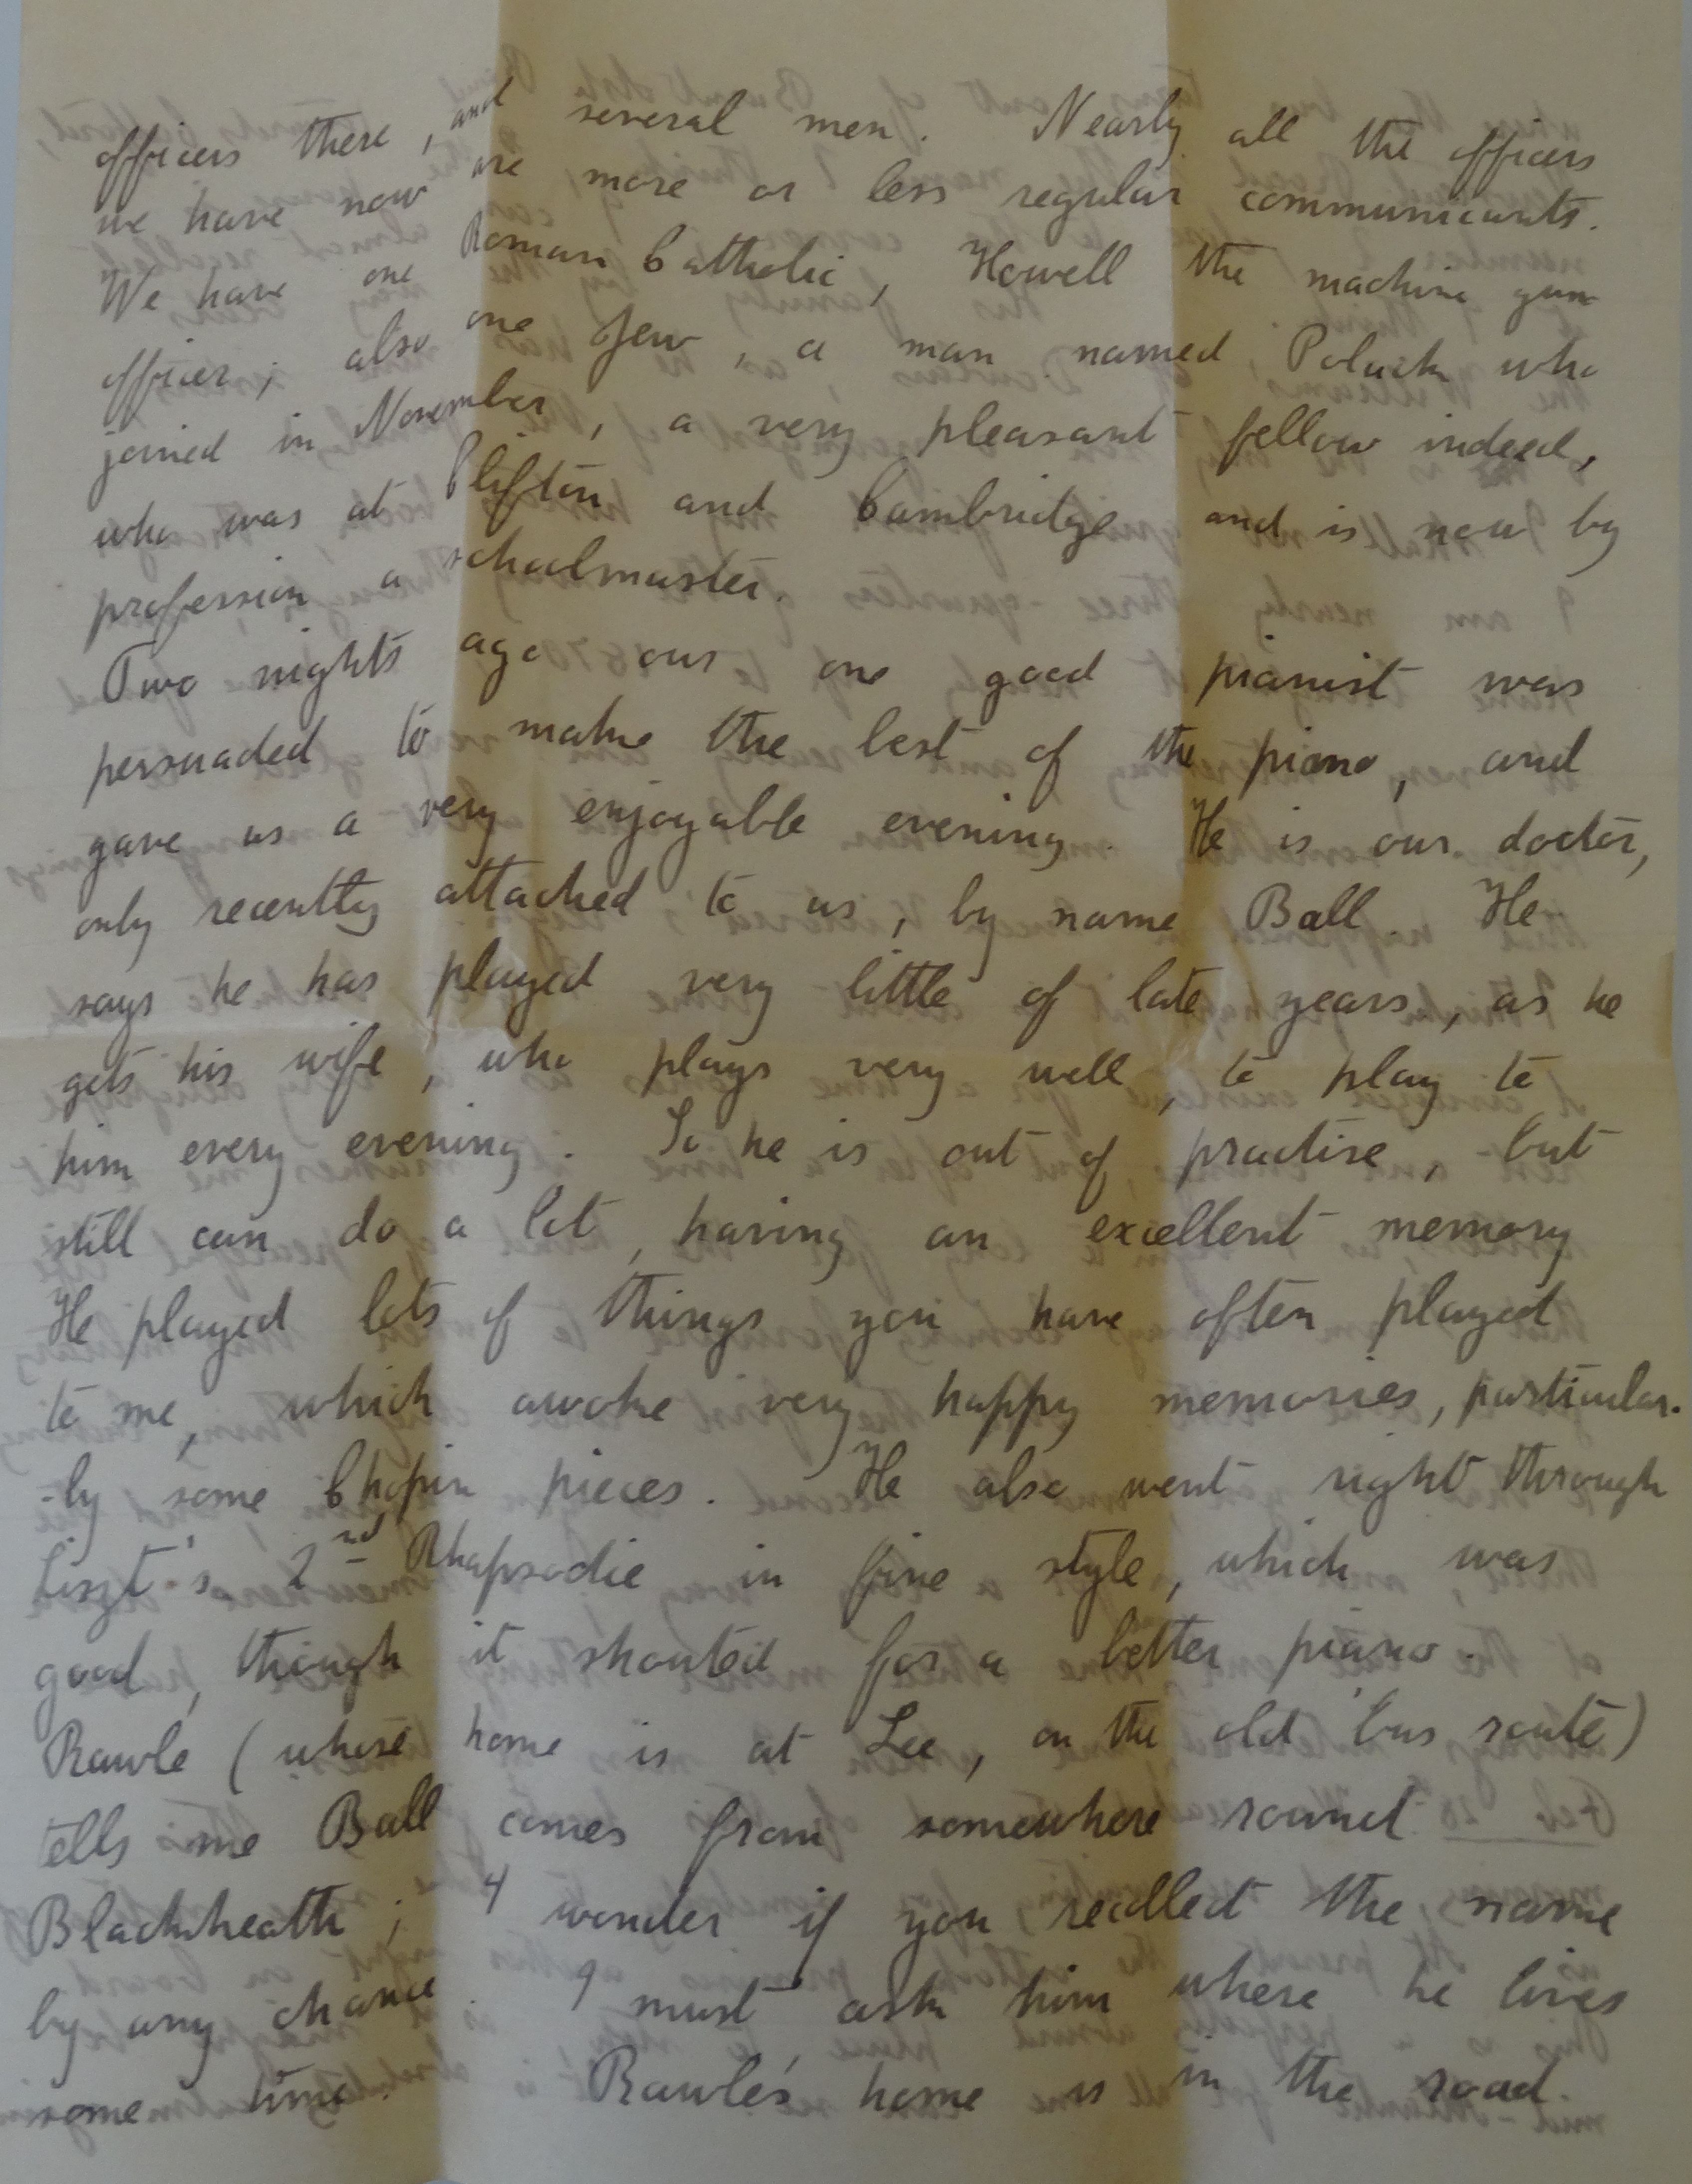 officers there, and several men. Nearly all the officers
we have now are more or less regular communicants.
We have one Roman Catholic, Howell the machine gun
officer; also one Jew, a man named Polack who
joined in November, a very pleasant fellow indeed,
who was at Clifton and Cambridge and is now by
profession a schoolmaster.
Two nights ago our one good pianist was
persuaded to make the best of the piano, and
gave us a very enjoyable evening. He is our doctor,
only recently attached to us, by name Ball. He
says he has played very little of late years, as he
gets his wife, who plays very well, to play to
him every evening. So he is out of practise, but
still can do a lot, having an excellent memory
He played lots of things you have often played
to me, which awoke very happy memories, particular-
-ly some Chopin pieces. He also went right through
Liszt's 2nd Rhapsodie in fine style, which was
good, though it shouted for a better piano.
Rawle (whose home is at Lee, on the old 'bus route)
tells me Ball comes from somewhere round
Blackheath; I wonder if you recollect the name
by any chance. I must ask him where he lives
some time. Rawle's home is in the road